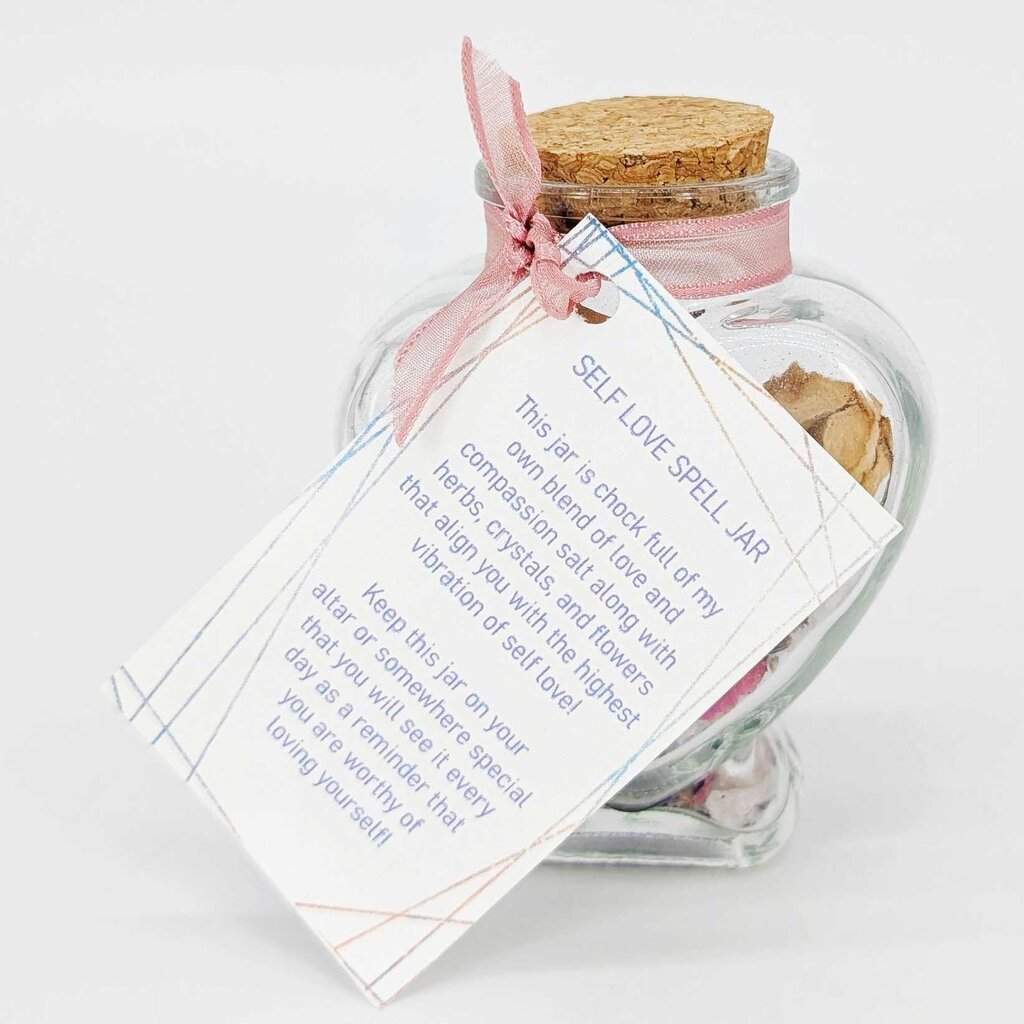 SELF LOVE SPELL JAR
This jar is chock full of my
own blend of love and
compassion salt along with
herbs, crystals, and flowers
that align you with the highest
vibration of self love!
Keep this jar on your
altar or somewhere special
that you will see it every
day as a reminder that
you are worthy of
loving yourself!